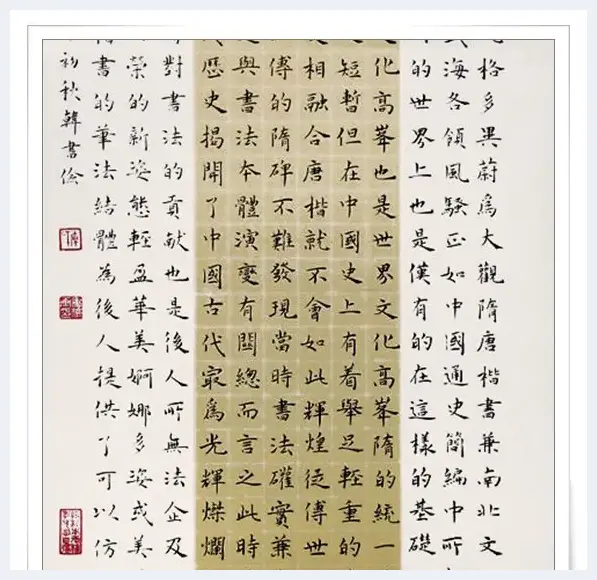 格多異蔚爲大觀隋唐楷書兼南北文
海各領風騷正如中國通史簡編中所
的世界上也是僅有的在這樣的基礎
化高峯也是世界文化高峯隋的統一
短暫但在中國史上有着舉足輕重的
相融合唐楷就不會如此輝煌從傳世
傳的隋碑不難發現當時書法礭實兼
與書法本體演變有関總而言之此時
歷史揭開了中國古代冣爲光輝燦爛
對書法的貢献也是後人所無法企及
榮的新姿態輕盈華美婀娜多姿或美
書的筆法結體為後人提供了可以仿
初秋韓書